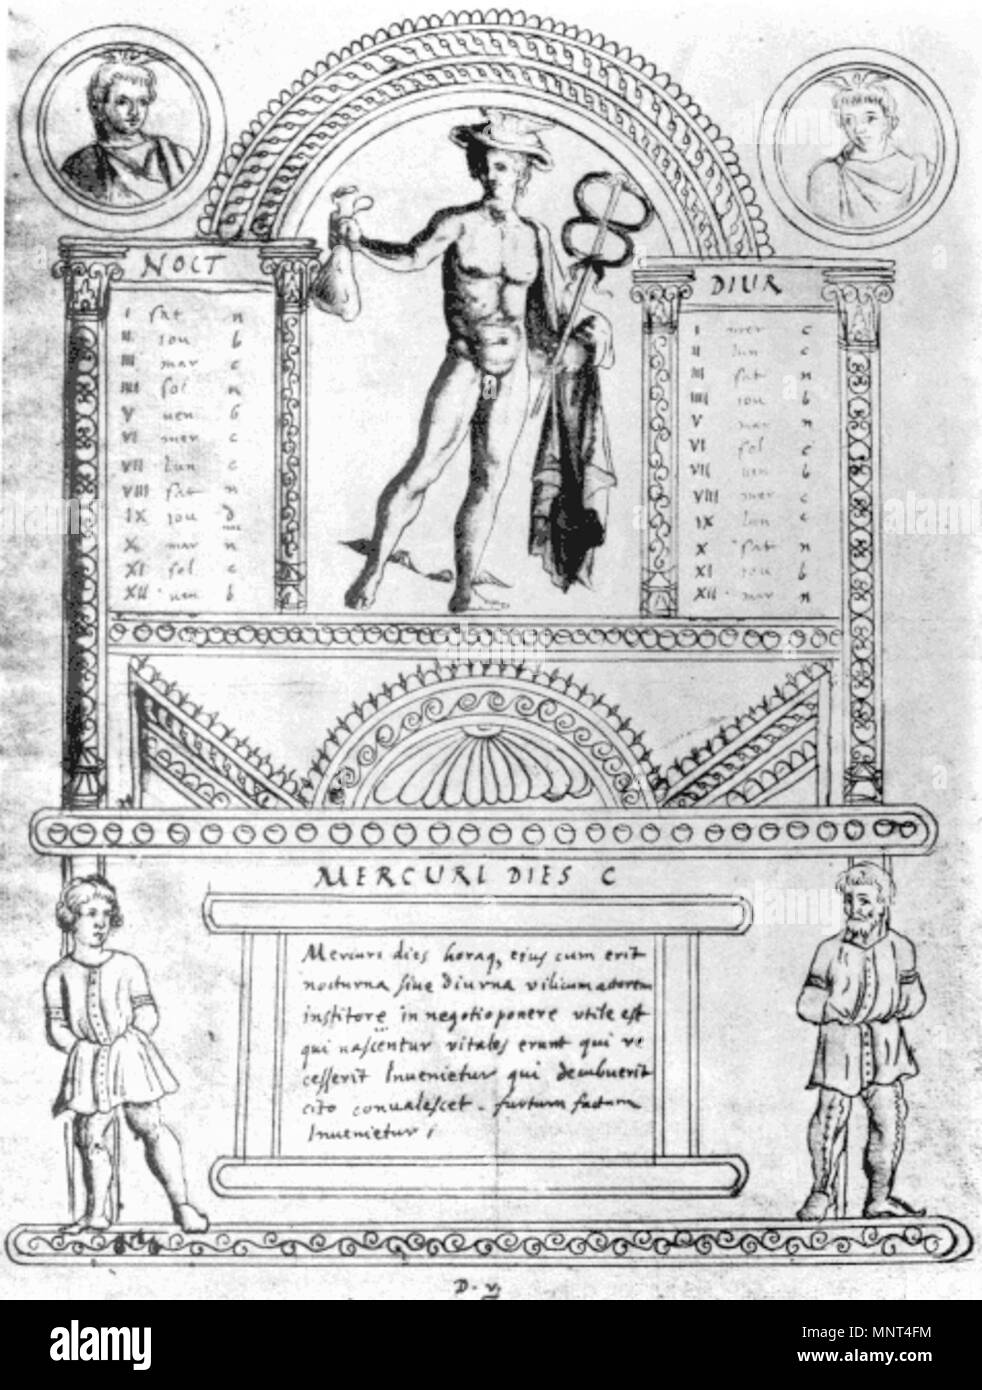 NOCT
I sat n
II iou b
III mar c
IIII sol n
V uen b
VI mer c
VII lun c
VIII sat n
IX iou d
X mar n
XI sol c
XII uen b
DIUR
I mer c
II lun c
III sat n
IIII iou b
V mar n
VI sol c
VII uen b
VIII mer c
IX lun c
X sat n
XI iou b
XII mar n
MERCURI DIES C
Mercuri dies horaq, ejus cum erit
nocturna siue Diurna vilicum actorem
institore in negotio ponere vtile est
qui nascentur vitales erunt qui re
cesserit Inuenietur qui decubuerit
cito conualescet. furtum factum
Inuenietur,
D. v.
alamy
Image ID: MNT4FM
www.alamy.com